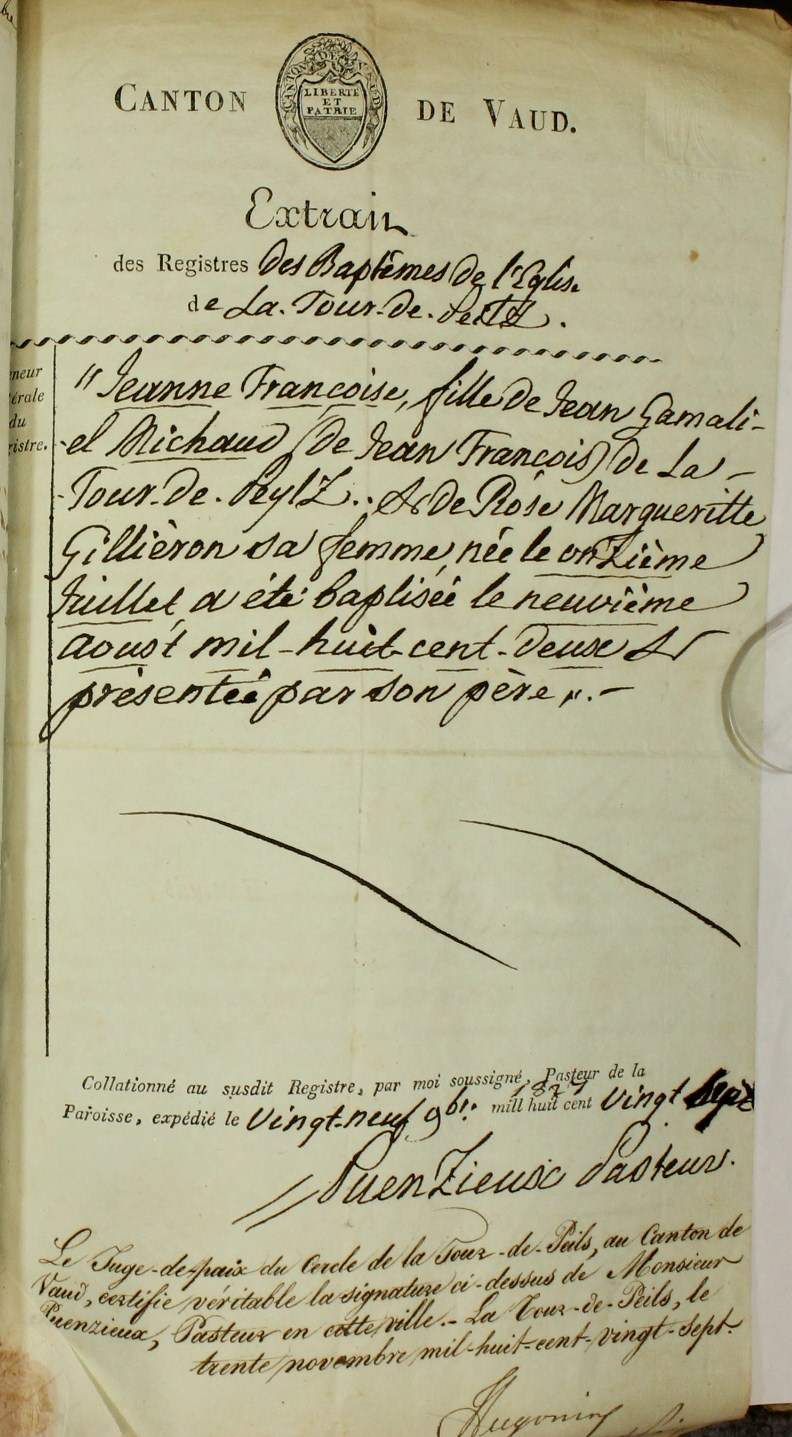 CANTON DE VAUD.
CANTON DE VAUD
LIBERTÉ
ET
PATRIE
Extrait
des Registres des Baptêmes de l'Eglise
de La-Tour-de-Peilz.
neur
érale
du
istre.
"Jeanne Françoise, fille de Jean Gamali-
-el Michaud (de Jean François) de La-
-Tour-de-Peylz.. & de Rose Margueritte
Gillièron sa femme, née le onzième
Juillet a été baptisée le neuvième
aoust mil-huit-cent-deux &
présentée par son père".-
Collationné au susdit Registre, par moi soussigné, Pasteur de la
1827
Paroisse, expédié le Vingt-neuf 9bre. mill huit cent Vingt Sept
Puenzieux Pasteur.
Le Juge-de-paix du Cercle de la Tour-de-Peils, au Canton de
Vaud, certifie véritable la signature ci-dessus de Monsieur
Puenzieux, Pasteur en cette ville.- La Tour-de-Peils, le
trente novembre mil-huit-cent-vingt-sept.
Hugonin